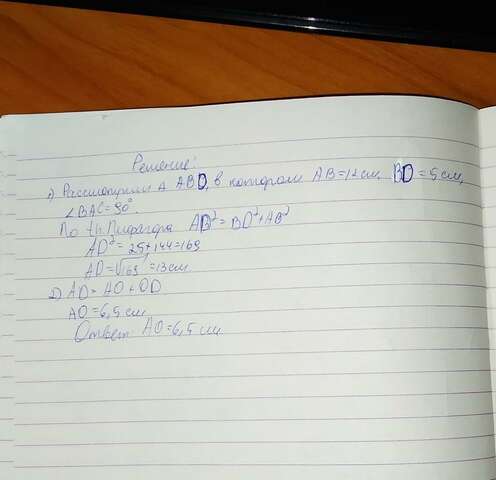 Решение:
1) Рассмотрим Δ ABD, в котором AB=12см, BD=5см,
∠BAC=90°.
По th.Пифагора AD²=BD²+AB²
AD²=25+144=169
AD=√169=13см
2) AD=AO+OD
AO=6,5см
Ответ: AO=6,5см